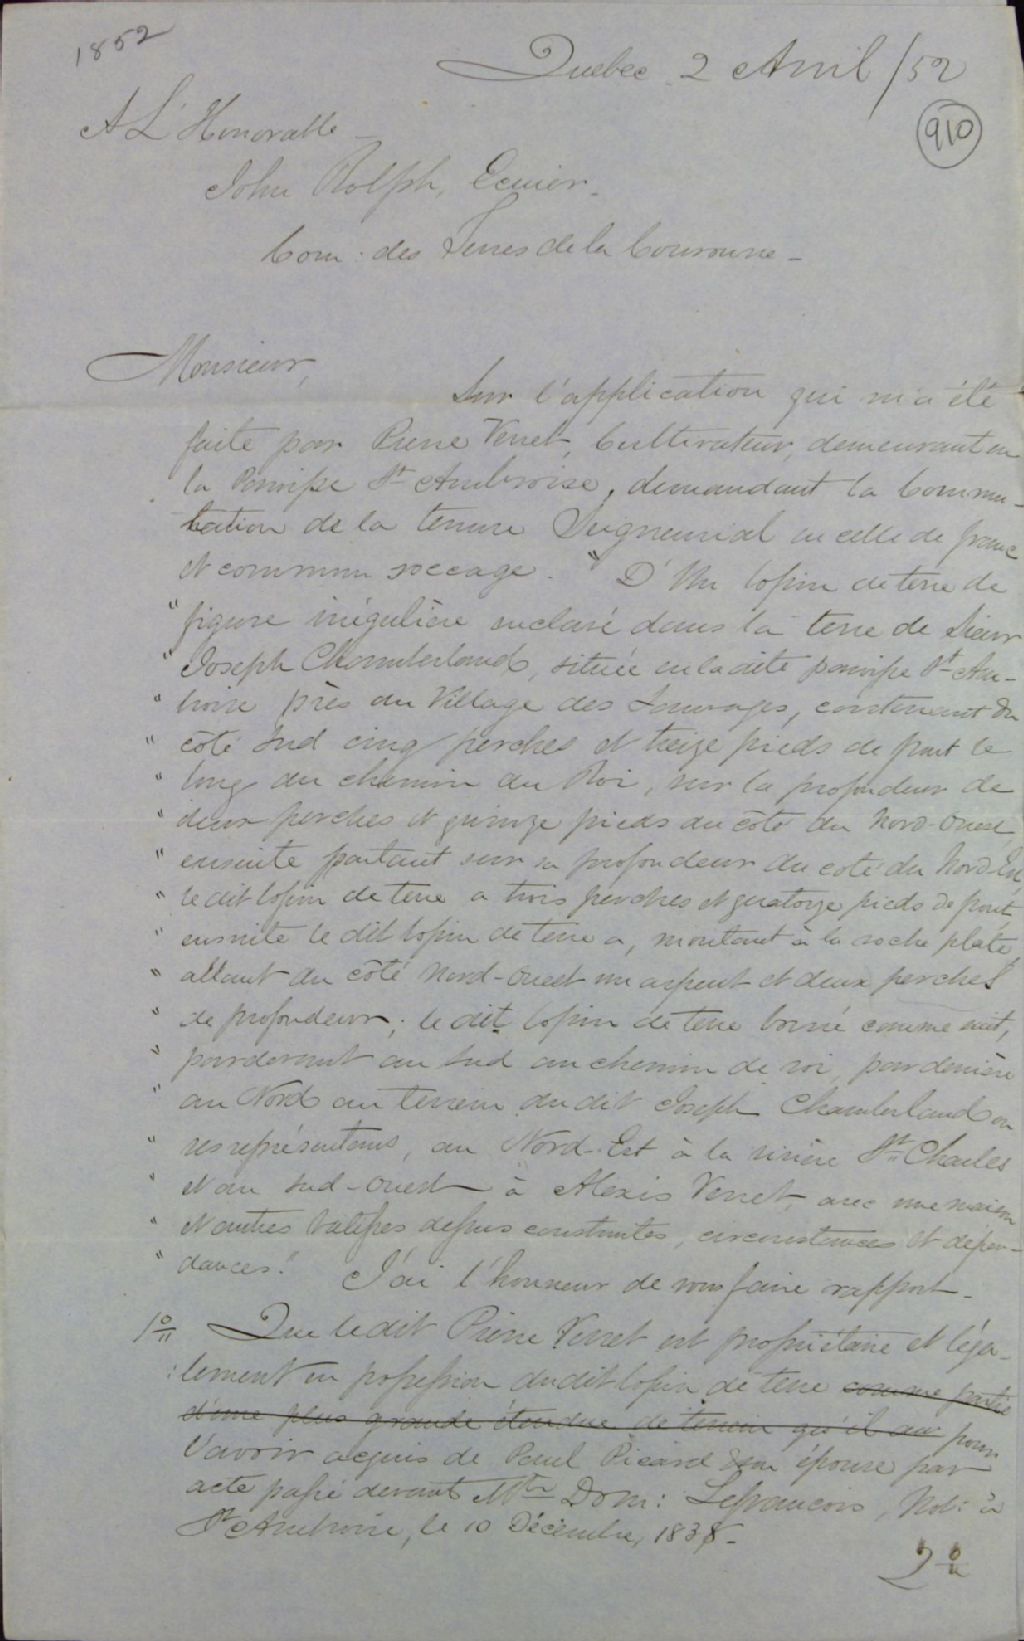 1852
Quebec 2 Avril /52
910
A L'Honorable
John Rolph, Ecuier
Com: des Terres de la Couronne -
Monsieur,
Sur l'application qui m'a été
faite par Pierre Verret, Cultivateur, demeurant en
la Paroisse St Ambroise, demandant la Commu-
tation de la tenure Seigneurial en celle de franc
et commun soccage. " D'Un lopin de terre de
" figure irrégulière enclavé dans la terre de Sieur
" Joseph Chamberland, située en la dite paroisse St Am-
" broise près du Village des Sauvages, contenant du
" côté Sud cinq perches et treize pieds de front le
" long du chemin du Roi, sur la profondeur de
" deux perches et quinze pieds du côté du Nord-Ouest,
" ensuite partant sur sa profondeur du coté du Nord Est
" le dit lopin de terre a trois perches et quatorze pieds de front,
" ensuite le dit lopin de terre a, montant à la roche plate,
" allant du côté Nord-Ouest un arpent et deux perches
" de profondeur; le dit lopin de terre borné comme suit,
" pardevant au Sud au chemin de roi, par derrière
" au Nord au terrein du dit Joseph Chamberland ou
" ses représentans, au Nord-Est à la rivière St Charles
" et au Sud-Ouest à Alexis Verret, avec une maison
" et autres batisses dessus construites, circonstances et dépen-
" dances." J'ai l'honneur de vous faire rapport -
1o Que le dit Pierre Verret est propriétaire et léga-
lement en possession du dit lopin de terre comme partie
d'une plus grande étendue de terrein qu'il a pour
l'avoir acquis de Paul Picard & son épouse par
acte passé devant Mtre Dom: Lefrancois, Not: à
St Ambroise, le 10 Décembre, 1838 -
2o